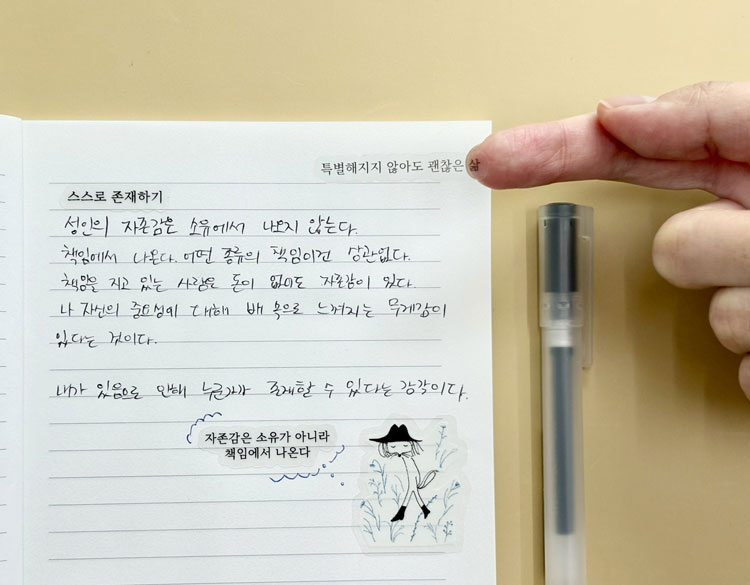 특별해지지 않아도 괜찮은 삶
스스로 존재하기
성인의 자존감은 소유에서 나오지 않는다.
책임에서 나온다. 어떤 종류의 책임이건 상관없다.
책임을 지고 있는 사람은 돈이 없어도 자존감이 있다.
나 자신의 중요성에 대해 배 속으로 느껴지는 무게감이
있다는 것이다.
내가 있음으로 인해 누군가가 존재할 수 있다는 감각이다.
자존감은 소유가 아니라
책임에서 나온다